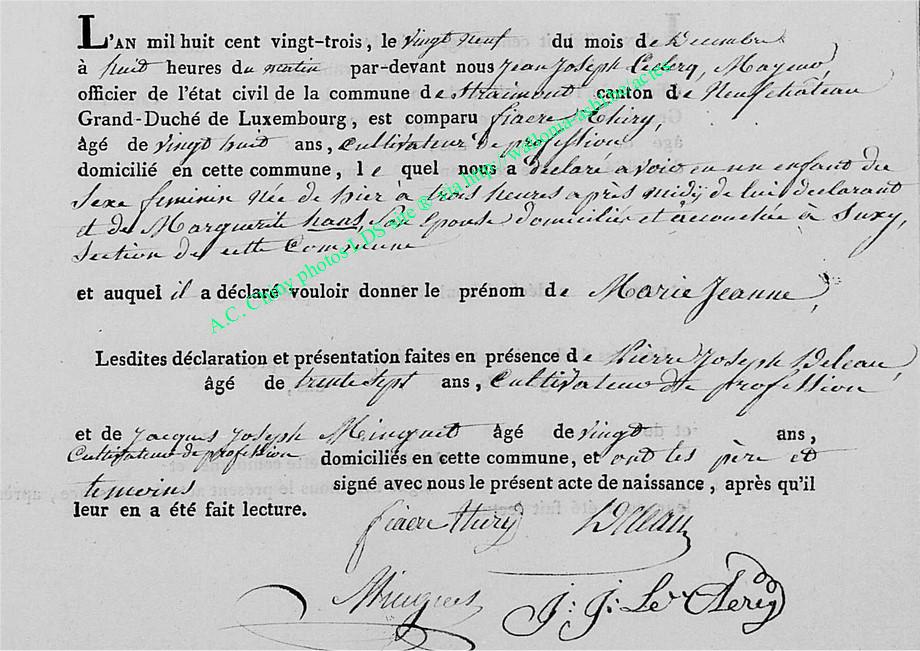 L'AN mil huit cent vingt-trois, le vingt neuf du mois de Decembre
à huit heures du matin par-devant nous Jean Joseph Leclerq, Mayeur,
officier de l'état civil de la commune de Straimont canton de Neufchâteau
Grand-Duché de Luxembourg, est comparu fiacre Thiry,
âgé de vingt huit ans, Cultivateur de profession
domicilié en cette commune, le quel nous a declaré avoir eu un enfant du
Sexe feminin née de hier à trois heures après midÿ de lui declarant
et de Marguerite hans, Son Epouse domiciliée et accouchée à Suxy,
Section de cette Commune
et auquel il a déclaré vouloir donner le prénom de Marie Jeanne,
Lesdites déclaration et présentation faites en présence de Pierre Joseph Deleau,
âgé de trente sept ans, Cultivateur de profession
et de Jacques Joseph Minguet âgé de vingt ans,
Cultivateur de profession domiciliés en cette commune, et ont les père et
temoins signé avec nous le présent acte de naissance, après qu'il
leur en a été fait lecture.
fiacre thiry Deleau
Minguet J: J: Le Clerq
A.C. Chiny photos LDS site @ eta http://wallonia-asbl.be/actes